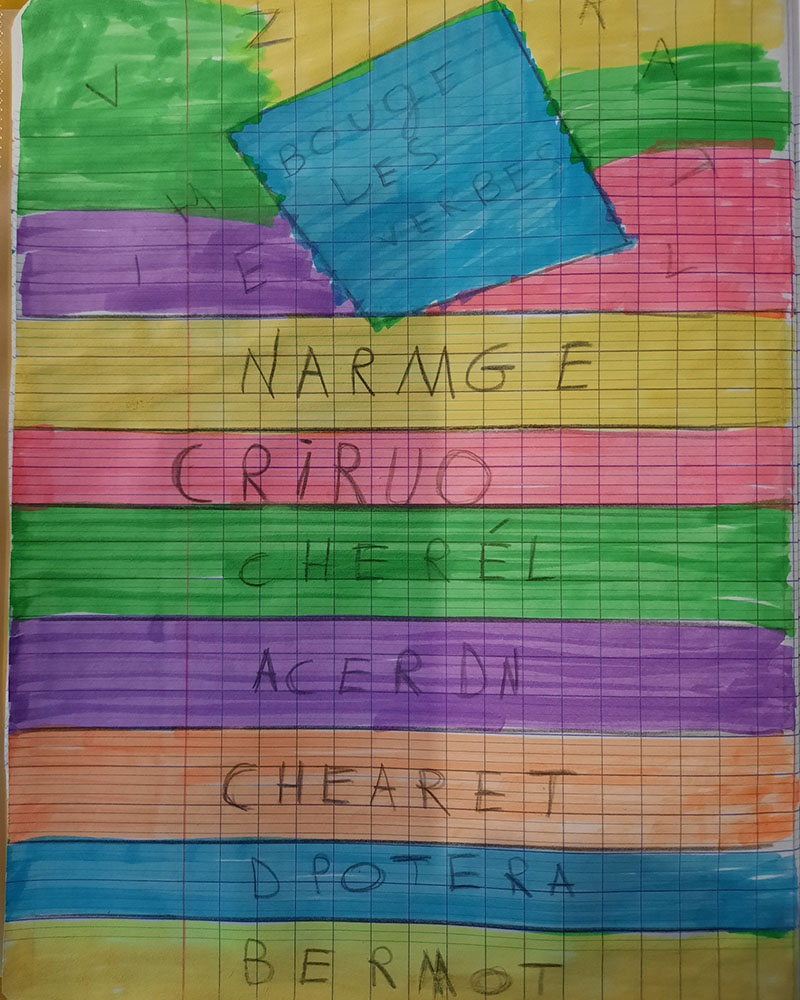 Z R
V A
BOUGE
LES
VERBES
M
I E L
NARMGE
CRIRUO
CHERÉL
ACERDN
CHEARET
DPOTERA
BERMOT